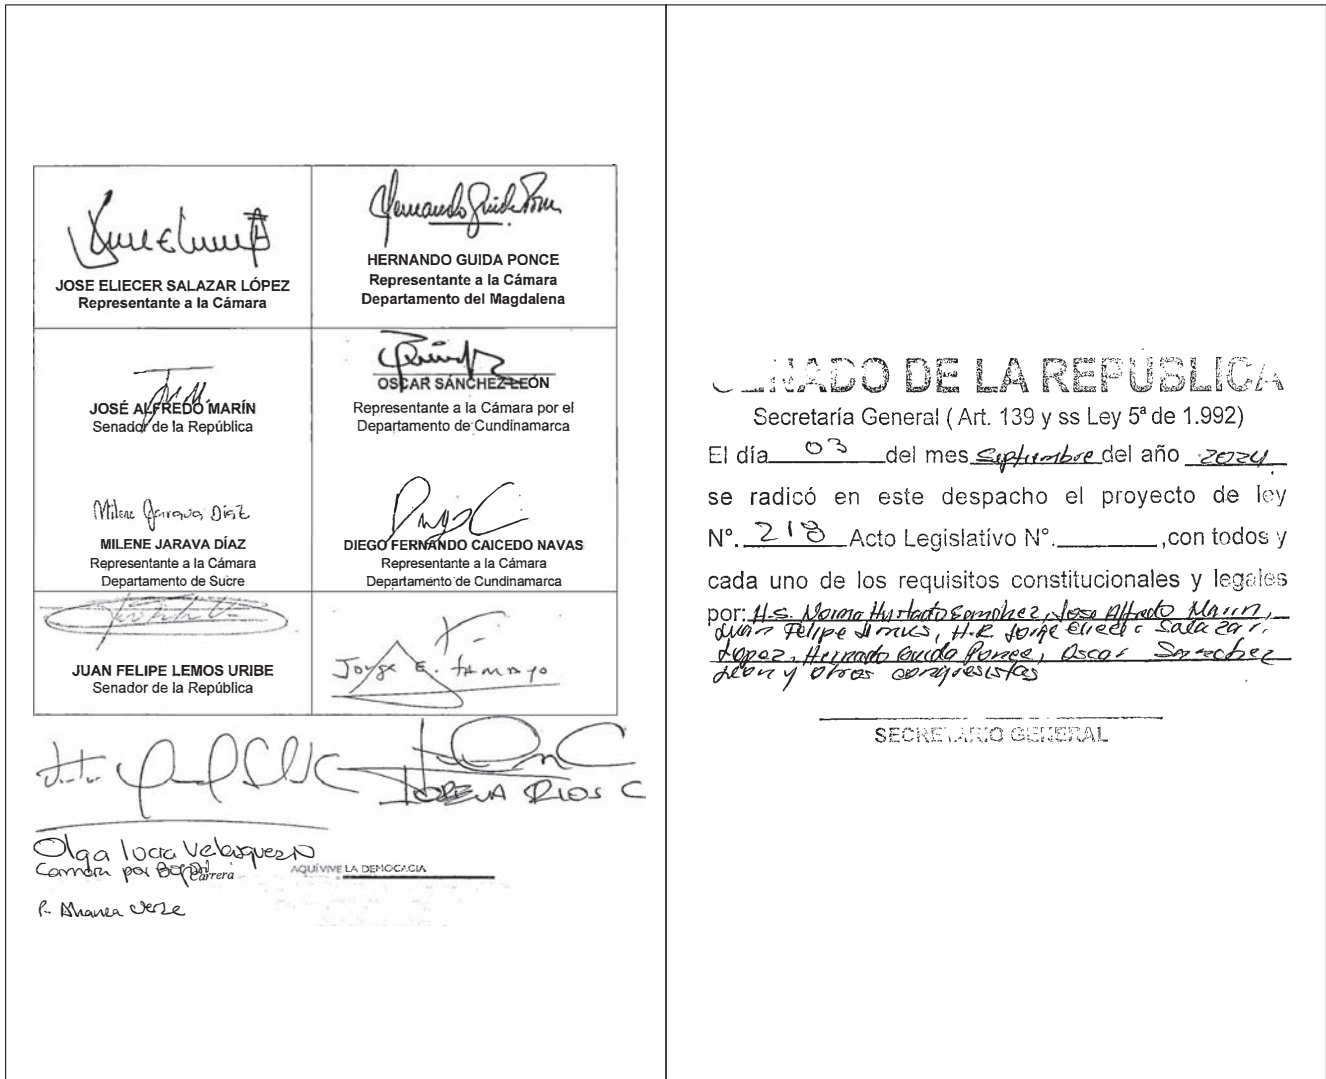 JOSE ELIECER SALAZAR LÓPEZ
Representante a la Cámara
HERNANDO GUIDA PONCE
Representante a la Cámara
Departamento del Magdalena
JOSÉ ALFREDO MARÍN
Senador de la República
OSCAR SÁNCHEZ LEÓN
Representante a la Cámara por el
Departamento de Cundinamarca
Milene Jarava Diaz
MILENE JARAVA DÍAZ
Representante a la Cámara
Departamento de Sucre
DIEGO FERNANDO CAICEDO NAVAS
Representante a la Cámara
Departamento de Cundinamarca
JUAN FELIPE LEMOS URIBE
Senador de la República
Jorge E. Tamayo
LORENA RIOS C
Olga Lucia Velasquez N
Camara por Bogotá
Carrera
AQUÍ VIVE LA DEMOCRACIA
P. Alianza Verde
SENADO DE LA REPÚBLICA
Secretaría General ( Art. 139 y ss Ley 5ª de 1.992)
El día 03 del mes Septiembre del año 2024
se radicó en este despacho el proyecto de ley
N°. 218 Acto Legislativo N°. ________ ,con todos y
cada uno de los requisitos constitucionales y legales
por: H.S. Norma Hurtado Sanchez, Jose Alfredo Marin,
Juan Felipe Lemus, H.R. Jorge Eliecer Salazar
Lopez, Hernando Guida Ponce, Oscar Sanchez
Leon y otros congresistas
SECRETARIO GENERAL